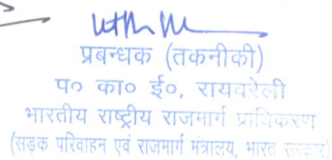 प्रबन्धक (तकनीकी)
प० का० ई०, रायबरेली
भारतीय राष्ट्रीय राजमार्ग प्राधिकरण
(सड़क परिवाहन एवं राजमार्ग मंत्रालय, भारत सरकार)